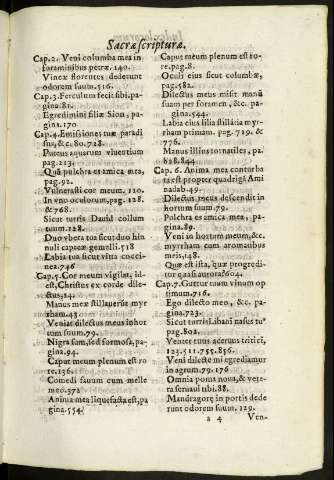 Sacræ scripturæ.
Cap.2. Veni columba mea in
foraminibus petræ. 140.
Vineæ florentes dederunt
odorem suum.516.
Cap.3. Ferculum fecit sibi. pa-
gina.81.
Egredimini filiæ Sion, pa-
gina.170.
Cap.4. Emissiones tuæ paradi
sus, &c. 80.728.
Puteus aquarum viuentium
pag.213.
Quã pulchra es amica mea,
pag.92.
Vulnerasti cor meum, 110.
In vno oculorum, pag. 128.
& 768.
Sicut turris Dauid collum
tuum.128.
Duo vbera tua sicut duo hin
nuli capreæ gemelli.718
Labia tua sicut vitta cocci-
nea.746
Cap.5. Cor meum vigilat, id-
est, Christus ex corde dile-
ctus,14.
Manus meæ stillauerũt myr
rham.43
Veniat dilectus meus in hor
tum suum.79.
Nigra sum, sed formosa, pa-
gina.94.
Caput meum plenum est ro
re.136.
Comedi fauum cum melle
meo.572
Anima mea liquefacta est, pa
gina.554.
Caput meum plenum est ro-
re.pag.8.
Oculi eius sicut columbæ,
pag.582.
Dilectus meus misit manũ
suam per foramen, &c. pa-
gina.544.
Labia eius lilia stillãtia myr
rham primam. pag.719. &
776.
Manus illius tornatiles, pa-
828.844
Cap. 6. Anima mea conturba
ta est propter quadrigã Ami
nadab.49.
Dilectus meus descendit in
hortum suum.79.
Pulchra es amica mea, pa-
gina.89.
Veni in hortum meum, &c.
myrrham cum aromatibus
meis,148.
Quæ est ista, quæ progredi-
tur quasi aurora?604.
Cap.7. Guttur tuum vinum op
timum.716.
Ego dilecto meo, &c. pa-
gina.723.
Sicut turris Libani nasus tu9
pag.802.
Venter tuus aceruus tritici,
123.511.755.856.
Veni dilecte mi egrediamur
in agrum.79.176
Omnia poma noua, & vete-
ra seruaui tibi.88.
Mandragoræ in portis dede
runt odorem suum. 129.
a 4 Ven-